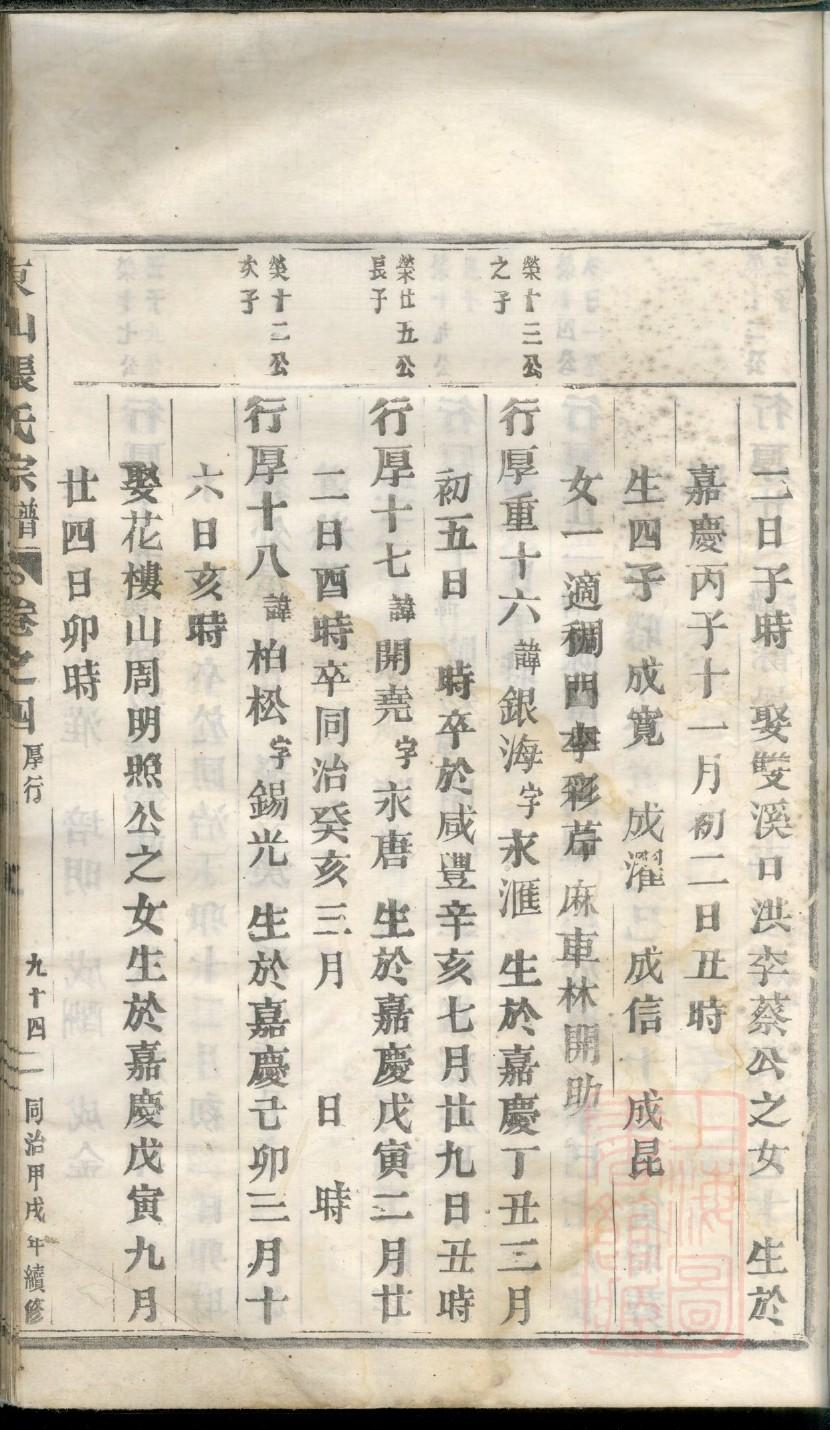 二日子時 娶雙溪口洪李蔡公之女 生於
嘉慶丙子十一月初二日丑時
生四子 成寬 成濯 成信 成昆
女一適稠門李彩 麻車林開助
榮十三公
之子
行厚重十六諱銀海字永滙 生於嘉慶丁丑三月
初五日 時卒於咸豐辛亥七月廿九日丑時
榮廿五公
長子
行厚十七諱開堯字永唐 生於嘉慶戊寅二月廿
二日酉時卒同治癸亥三月 日 時
榮十二公
次子
行厚十八諱柏松字錫光 生於嘉慶己卯三月十
六日亥時
娶花樓山周明照公之女生於嘉慶戊寅九月
廿四日卯時
東山張氏宗譜 卷之四 厚行 九十四 同治甲戌年續修
上海圖書館藏